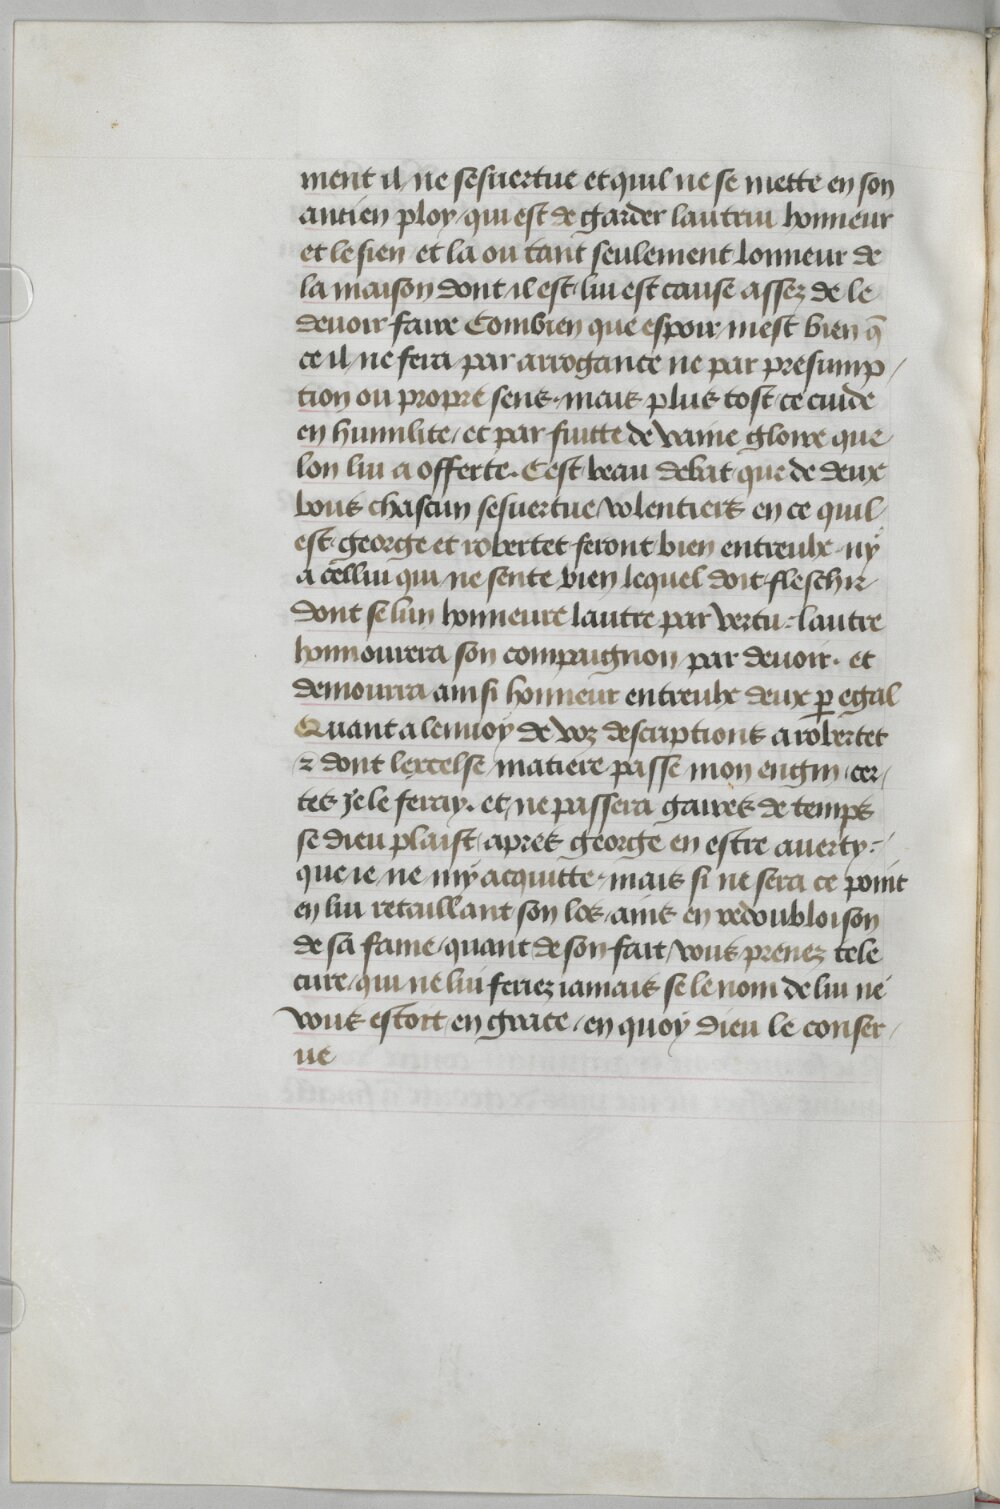 ment il ne sesuertue et quil ne se mette en son
antien ploy / qui est de garder lautrui honneur
et le sien et la ou tant seulement lonneur de
la maison dont il est lui est cause assez de le
deuoir faire Combien que espoir mest bien q̃
ce il ne fera par arrogance ne par presump /
tion ou propre sens / mais plus tost ce cuide
en humilite / et par fuitte de vaine gloire que
lon lui a offerte. Cest beau debat que de deux
bons chascun sesuertue volentiers en ce quil
est george et robertet feront bien entreulx / ny
a cellui qui ne sente bien lequel doit fleschir
dont se lun honneure lautre par vertu : lautre
honnourera son compaignon par deuoir. et
demourra ainsi honneur entreulx deux ꝑ egal
Quant a lenuoy de voz descriptions a robertet
⁊ dont lexcelse matiere passe mon engin / cer /
tes Je le feray. et ne passera gaires de temps
se dieu plaist / apres george en estre auerty :
que ie ne my acquitte / mais si ne sera ce point
en lui retaillant son los / ains en redoubloison
de sa fame / quant de son fait vous prenez tele
cure / qui ne lui feriez iamais se le nom de lui ne
vous estoit en grace / en quoy dieu le conser /
ue